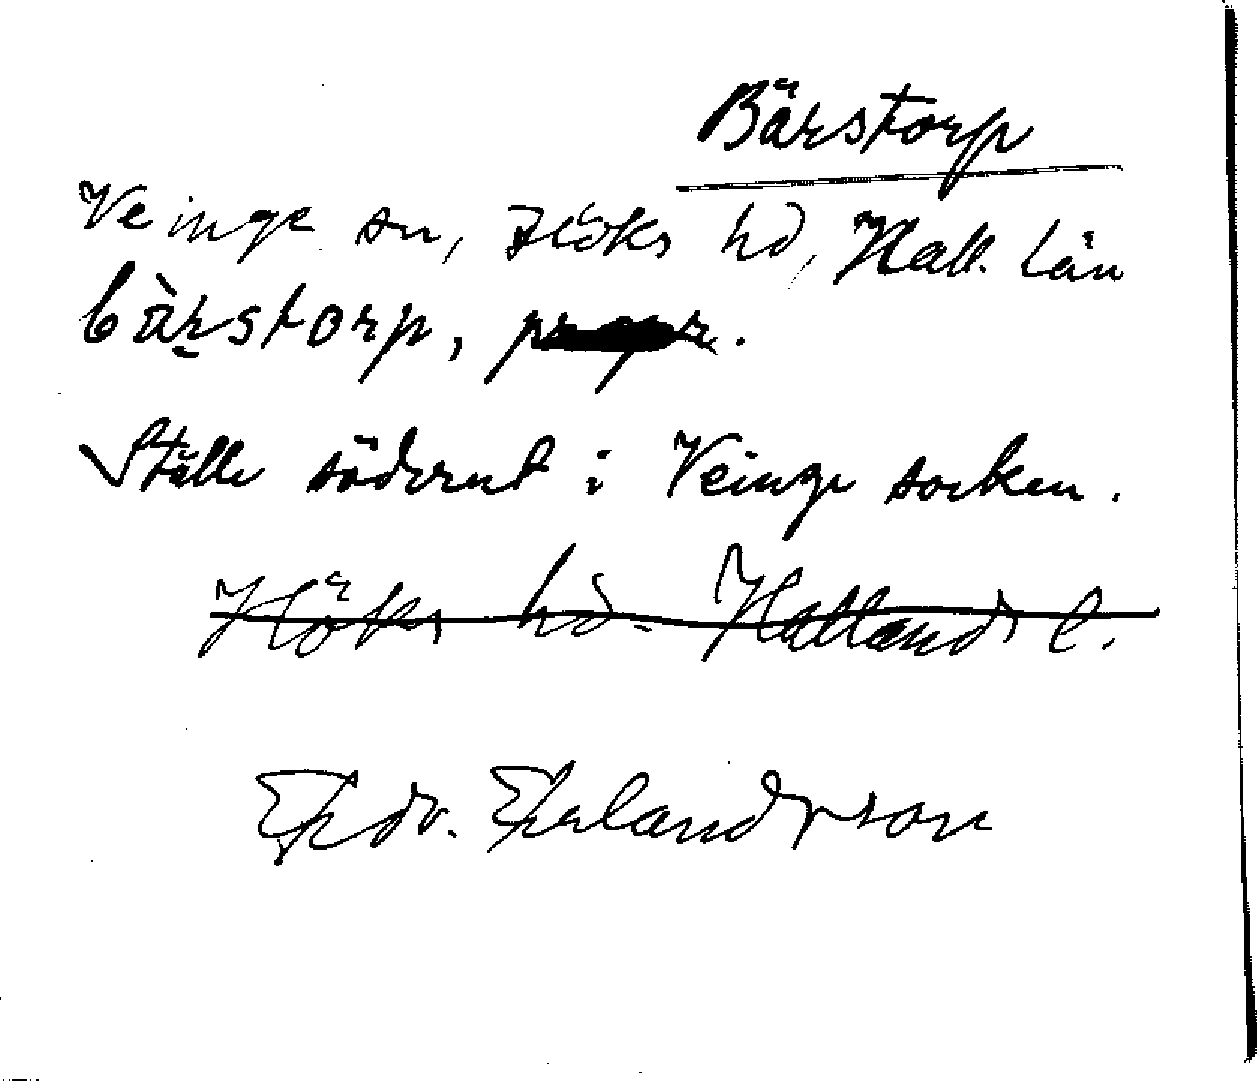 Bärstorp
Veinge sn, Höks hd, Hall. län
bàrstorp,
Ställe söderut i Veinge socken.
Höks hd. Hallands l.
Erlandsson